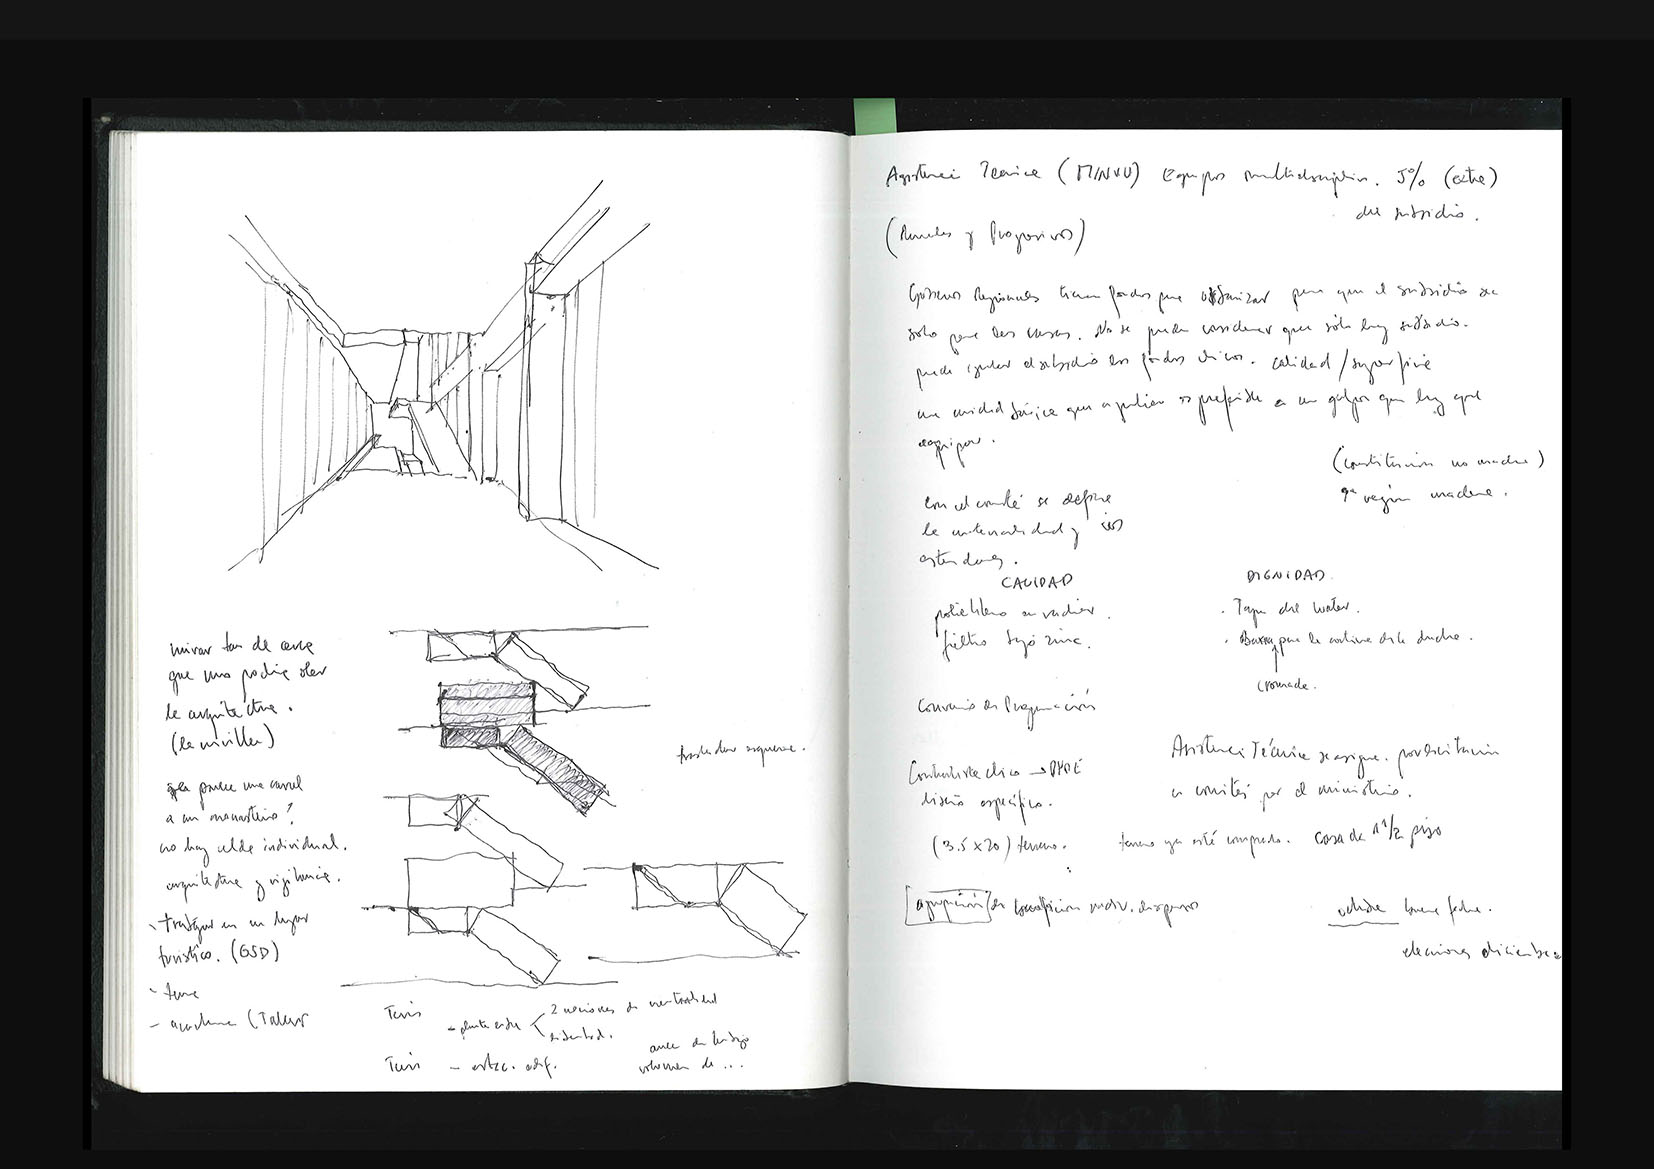 mirar tan de cerca
que uno podía oler
la arquitectura.
(la niviller)
parece una carcel
a un monasterio?
no hay celda individual.
arquitectura y vigilancia.
- trabajar en un lugar
turístico. (GSD)
- tema
- academia (Taller
trasladar esquema.
Tesis
- planta entre < 2 versiones de neutralidad
identidad.
Tesis - estac. edif.
area de trabajo
volumen de ...
Asistencia Técnica (MINVU) Equipos multidisciplin. 5% (extra)
del subsidio.
(Rurales y Progresivos)
Gobiernos Regionales tienen fondos para urbanizar para que el subsidio sea
solo para las casas. No se puede considerar que sólo hay subsidio.
puede igualar el subsidio los fondos chicos. calidad / superficie
una unidad básica que amplíen es preferible a un galpón que hay que
equipar.
(Constitución no madera)
9ª región madera.
Con el comité se define
la materialidad y los
estandares.
CALIDAD
polietileno en radier.
fieltro bajo zinc.
DIGNIDAD.
. Tapa del water.
. Barra para la cortina de la ducha.
cromada.
Convenio de Programación
Contratista chico → PYME
diseño específico.
(3.5 x 20) terreno.
Asistencia Técnica se asigna por licitación
a comités por el ministerio.
terreno ya está comprado. casa de 1 1/2 piso
agrupación de individ. dispersos
buena fecha.
elecciones diciembre